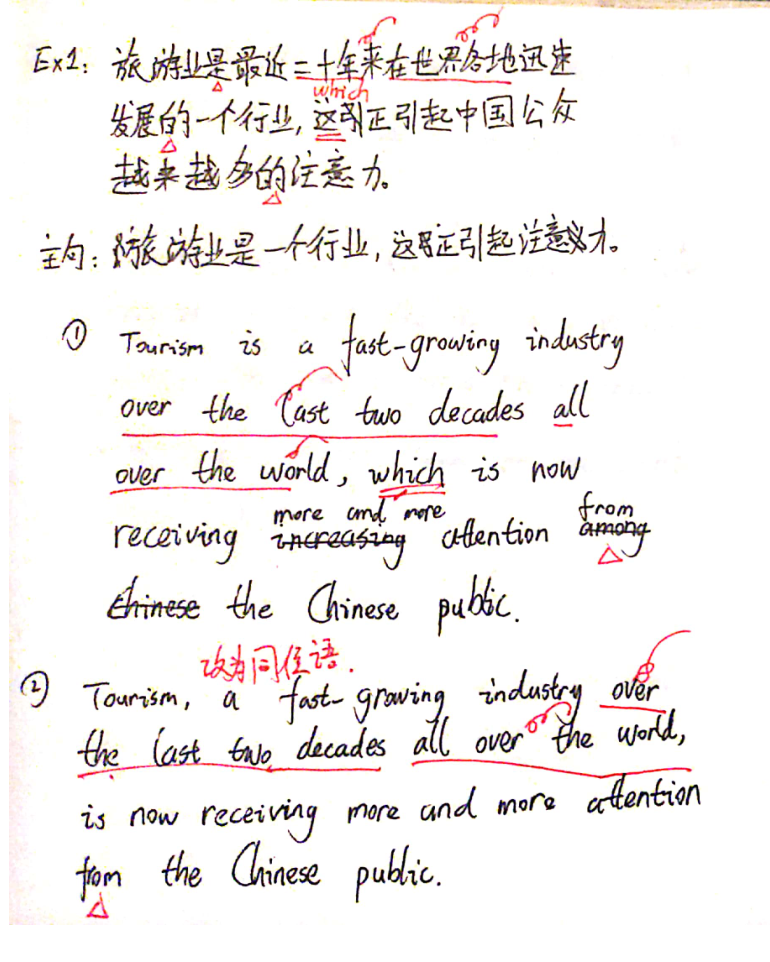 Ex1: 旅游业是最近二十年来在世界各地迅速
which
发展的一个行业, 这引正引起中国公众
越来越多的注意力。
主句: 旅游业是一个行业, 这正引起注意力。
① Tourism is a fast-growing industry
over the last two decades all
over the world, which is now
more and more from
receiving increasing attention among
Chinese the Chinese public.
改为同位语.
② Tourism, a fast-growing industry over
the last two decades all over the world,
is now receiving more and more attention
from the Chinese public.